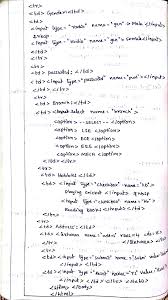 <tr>
<td> Gender: </td>
<td>
<input type="radio" name="gen"> Male </input>
&nbsp
<input type="radio" name="gen"> Female </input>
</td>
</tr>
<tr>
<td> Password: </td>
<td> <input type="password" name="pwd"> </td>
</tr>
<tr>
<td> Branch: </td>
<td> <select name="branch">
<option> --select-- </option>
<option> CSE </option>
<option> ECE </option>
<option> EEE </option>
<option> MECH </option>
</td>
</tr>
<tr>
<td> Hobbies </td>
<td> <input type="checkbox" name="hb">
Playing cricket </input> &nbsp
<input type="checkbox" name="hb">
Reading books </input> </td>
</tr>
<tr>
<td> Address: </td>
<td> <textarea name="addr" rows=4 cols=
</textarea>
</tr>
<td> <input type="submit" name="submit" value=
</input> </td>
<td> <input type="reset" name="rs" value=
</input> </td>
</tr> </table>
</body>